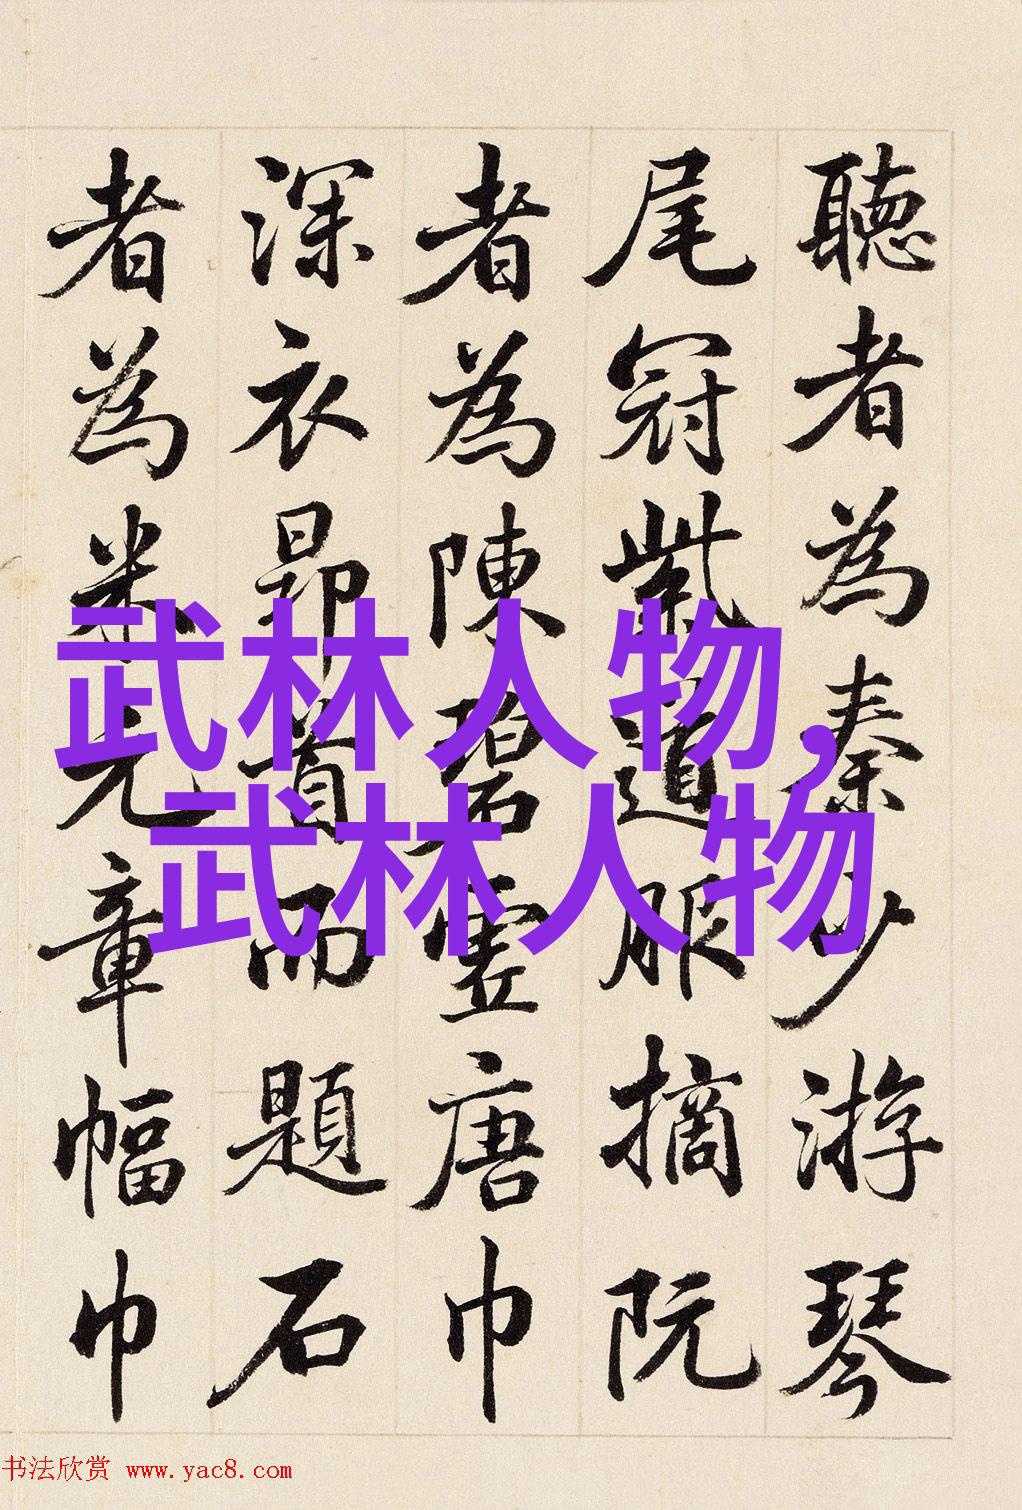 聽者為秦少游琴
尾冠紫道服摘阮
者為陳碧虛唐巾
深衣昂首而題石
者為米元章幅巾
武林人物,
武林人物
书法欣赏 www.yac8.com